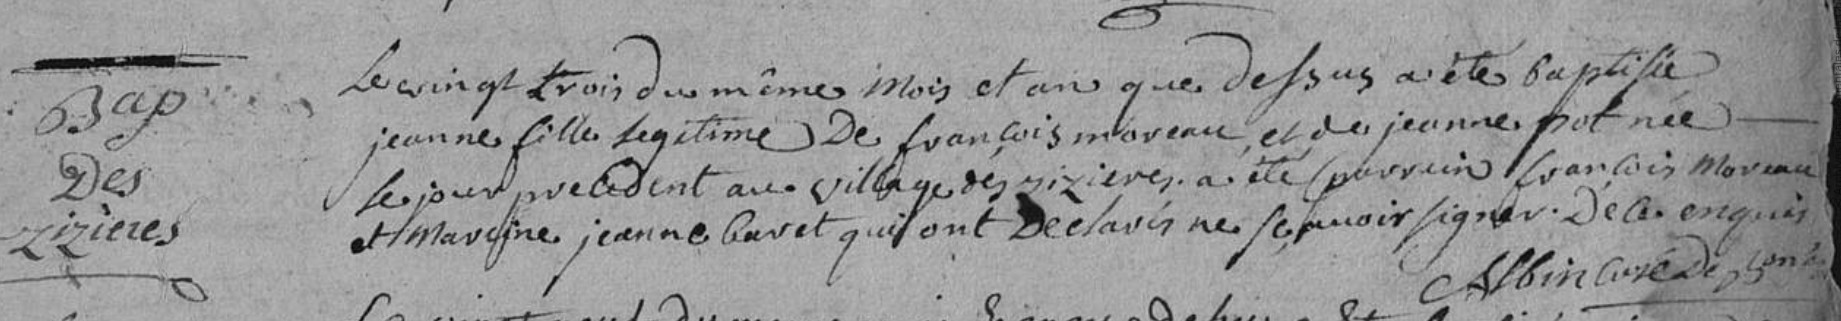 Bap
Des
zizières
Le vingt trois du même mois et an que dessus a été baptisée
jeanne fille legitime De françois moreau et de jeanne pot née
le jour precedent au village des zizieres. a été parrain françois Moreau
et Mareine jeanne baret qui ont Declarés ne sçavoir signer. De ce enquis
Albin Curé De